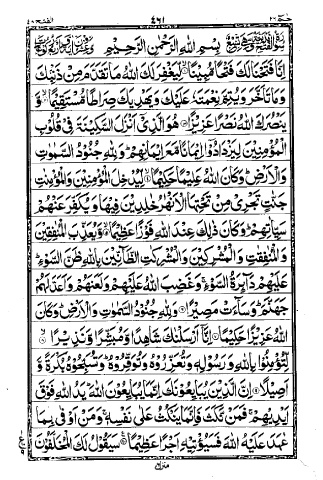 الفتح ٤٨ ٤٦١ حٰم ٢٦
بِسْمِ اللهِ الرَّحْمٰنِ الرَّحِيْمِ
اِنَّا فَتَحْنَا لَكَ فَتْحًا مُّبِيْنًا لِّيَغْفِرَ لَكَ اللهُ مَا تَقَدَّمَ مِنْ ذَنْۢبِكَ
وَمَا تَاَخَّرَ وَيُتِمَّ نِعْمَتَهٗ عَلَيْكَ وَيَهْدِيَكَ صِرَاطًا مُّسْتَقِيْمًا وَّ
يَنْصُرَكَ اللهُ نَصْرًا عَزِيْزًا هُوَ الَّذِيْٓ اَنْزَلَ السَّكِيْنَةَ فِيْ قُلُوْبِ
الْمُؤْمِنِيْنَ لِيَزْدَادُوْٓا اِيْمَانًا مَّعَ اِيْمَانِهِمْ وَلِلّٰهِ جُنُوْدُ السَّمٰوٰتِ
وَالْاَرْضِ وَكَانَ اللهُ عَلِيْمًا حَكِيْمًا لِّيُدْخِلَ الْمُؤْمِنِيْنَ وَالْمُؤْمِنٰتِ
جَنّٰتٍ تَجْرِيْ مِنْ تَحْتِهَا الْاَنْهٰرُ خٰلِدِيْنَ فِيْهَا وَيُكَفِّرَ عَنْهُمْ
سَيِّاٰتِهِمْ وَكَانَ ذٰلِكَ عِنْدَ اللهِ فَوْزًا عَظِيْمًا وَّيُعَذِّبَ الْمُنٰفِقِيْنَ
وَالْمُنٰفِقٰتِ وَالْمُشْرِكِيْنَ وَالْمُشْرِكٰتِ الظَّآنِّيْنَ بِاللهِ ظَنَّ السَّوْءِ
عَلَيْهِمْ دَآئِرَةُ السَّوْءِ وَغَضِبَ اللهُ عَلَيْهِمْ وَلَعَنَهُمْ وَاَعَدَّ لَهُمْ
جَهَنَّمَ وَسَآءَتْ مَصِيْرًا وَلِلّٰهِ جُنُوْدُ السَّمٰوٰتِ وَالْاَرْضِ وَكَانَ
اللهُ عَزِيْزًا حَكِيْمًا اِنَّآ اَرْسَلْنٰكَ شَاهِدًا وَّمُبَشِّرًا وَّنَذِيْرًا
لِّتُؤْمِنُوْا بِاللهِ وَرَسُوْلِهٖ وَتُعَزِّرُوْهُ وَتُوَقِّرُوْهُ وَتُسَبِّحُوْهُ بُكْرَةً وَّ
اَصِيْلًا اِنَّ الَّذِيْنَ يُبَايِعُوْنَكَ اِنَّمَا يُبَايِعُوْنَ اللهَ يَدُ اللهِ فَوْقَ
اَيْدِيْهِمْ فَمَنْ نَّكَثَ فَاِنَّمَا يَنْكُثُ عَلٰى نَفْسِهٖ وَمَنْ اَوْفٰى بِمَا
عٰهَدَ عَلَيْهُ اللهَ فَسَيُؤْتِيْهِ اَجْرًا عَظِيْمًا سَيَقُوْلُ لَكَ الْمُخَلَّفُوْنَ